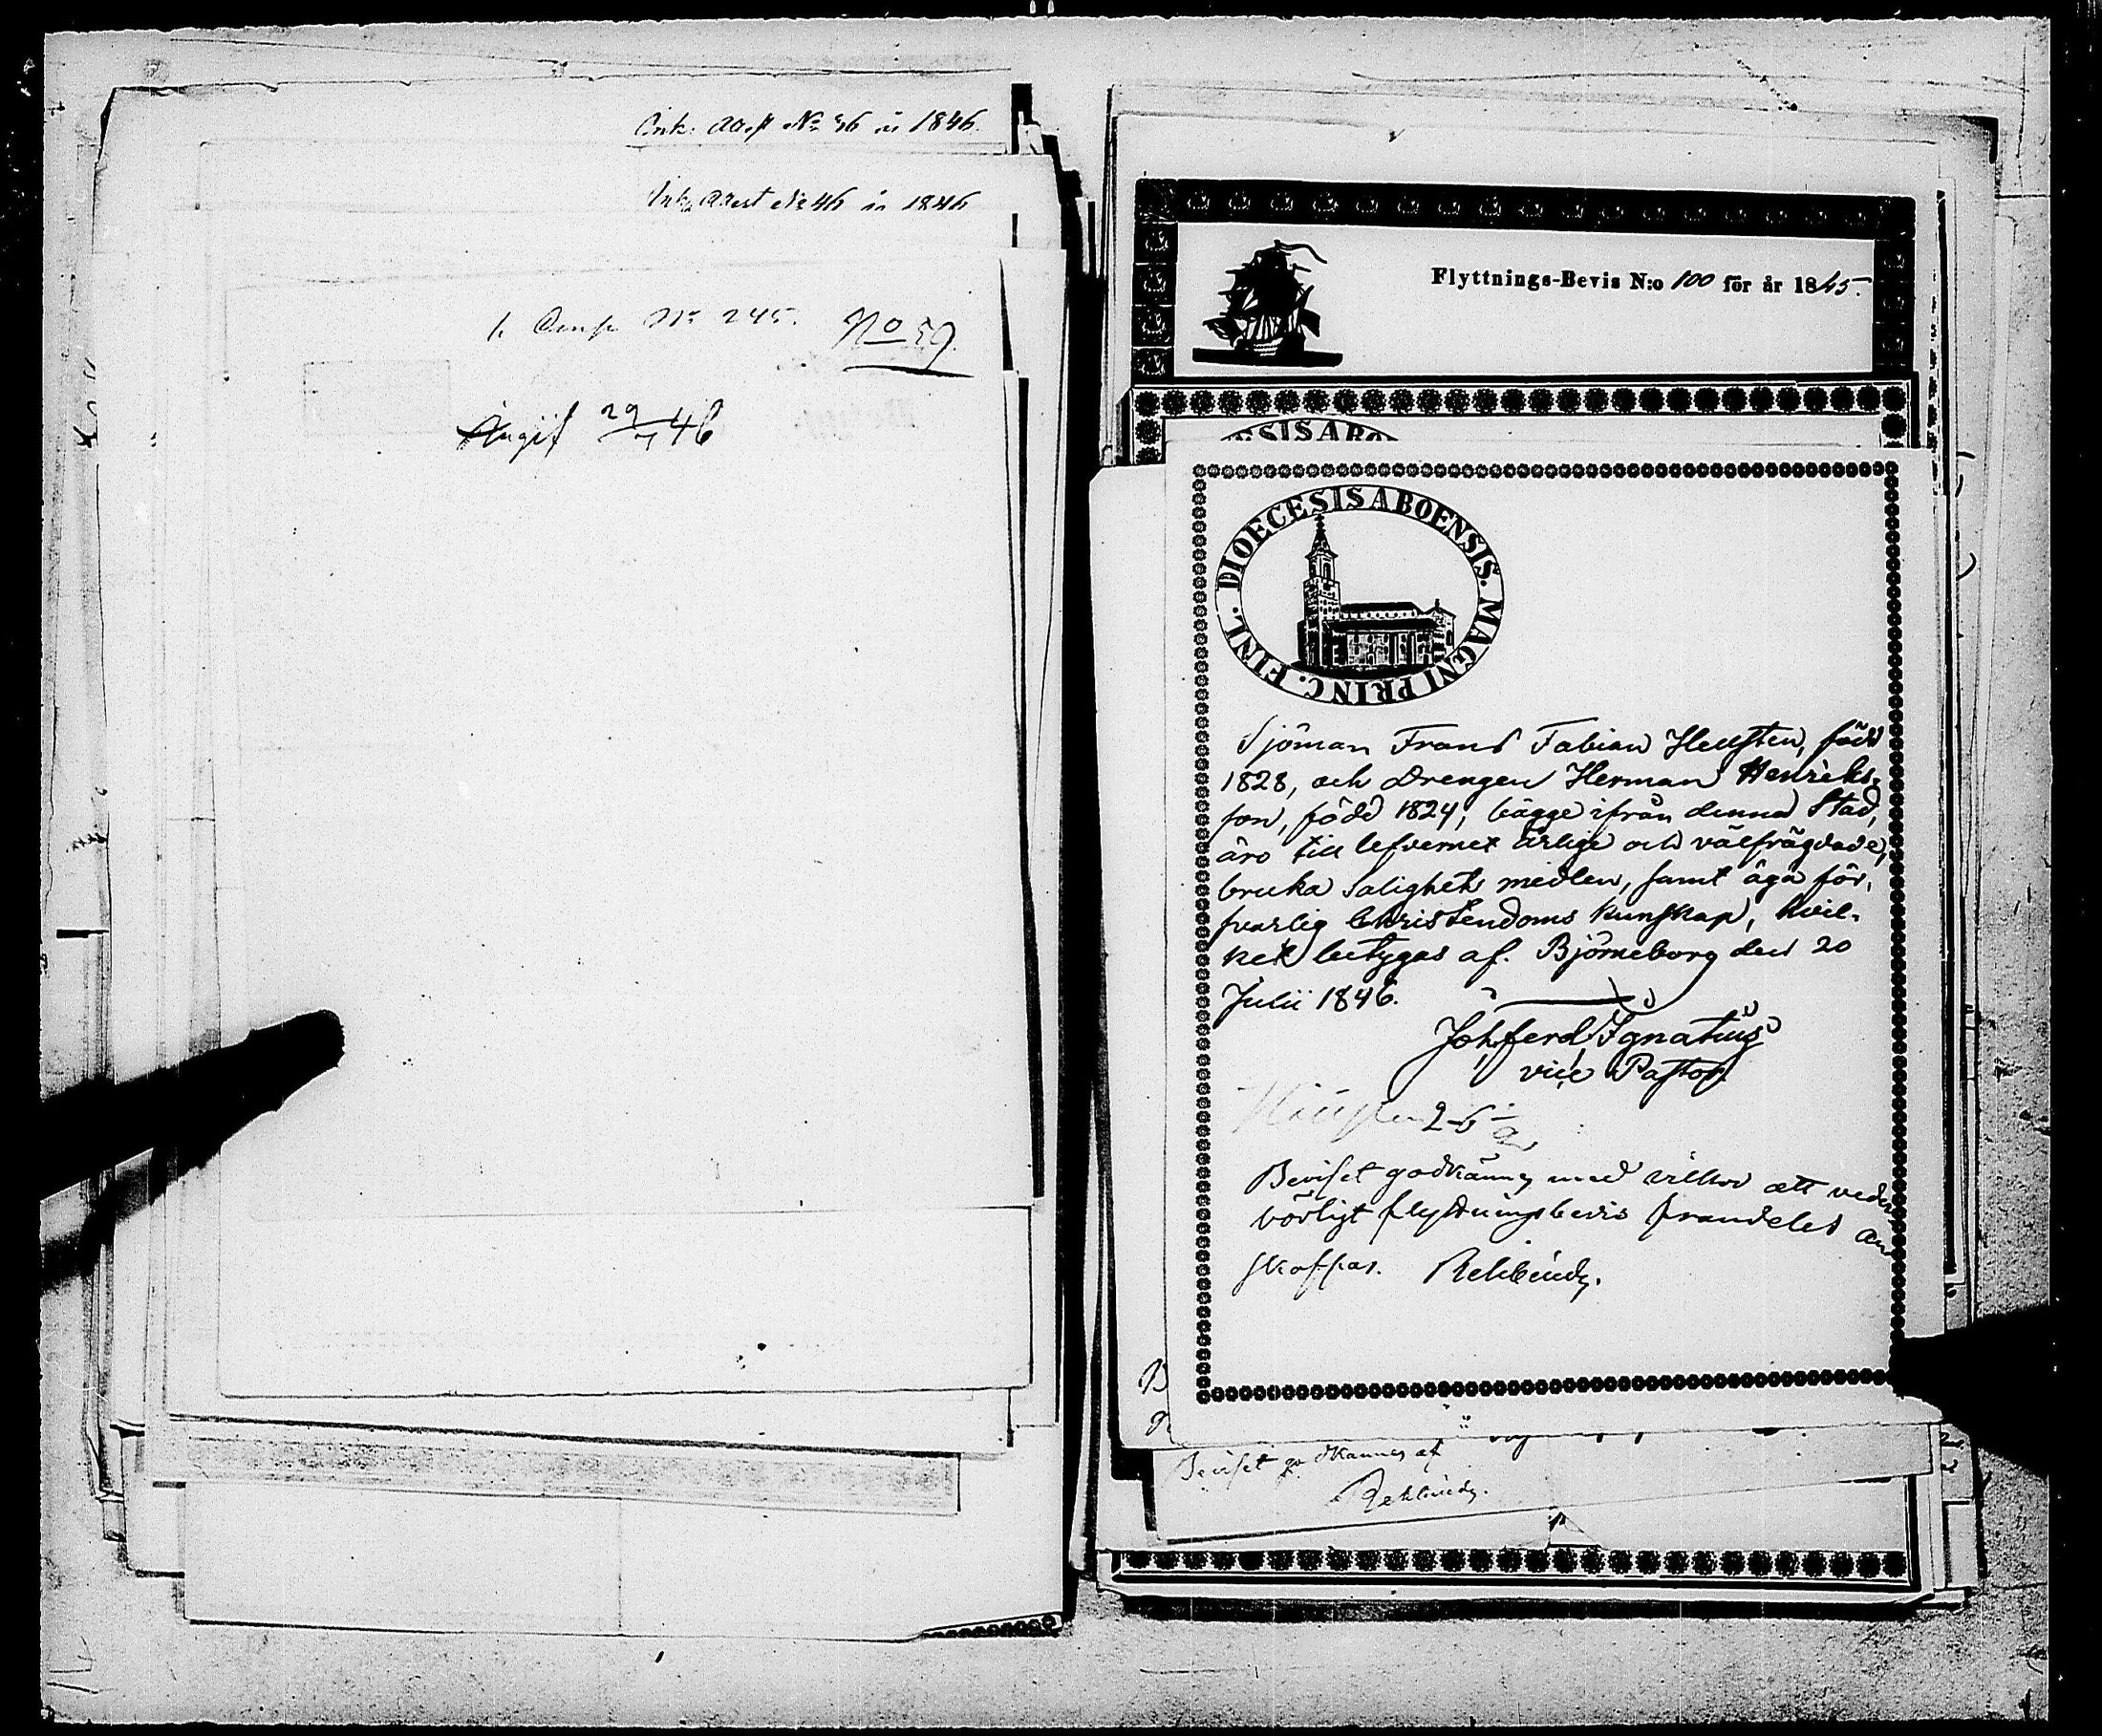 Ink. Attest No 36 år 1846.
Ink. Attest No 46 år 1846
No 245. No 59.
Angif 29/7 46
Flyttnings-Bevis N:o 100 för år 1845.
ESIS ABO
DIOECESIS ABOENSIS. MAGNI PRINC. FINL.
Sjöman Frans Fabian Hellsten, född
1828, och Drengen Herman Henriks-
son, född 1824, bägge ifrån denna Stad,
äro till lefvernet ärlige och välfrägdade,
bruka Salighets medlen, samt äga för-
svarlig Christendoms kunskap, hvil-
ket betygas af. Björneborg den 20
Julii 1846.
Joh. Ferd. Ignatius
vice Pastor.
Beviset godkännes med vilkor att veder
börligt flyttningsbevis framdeles an
skaffas. Rehbinder.
Beviset godkännes af
Rehbinder.